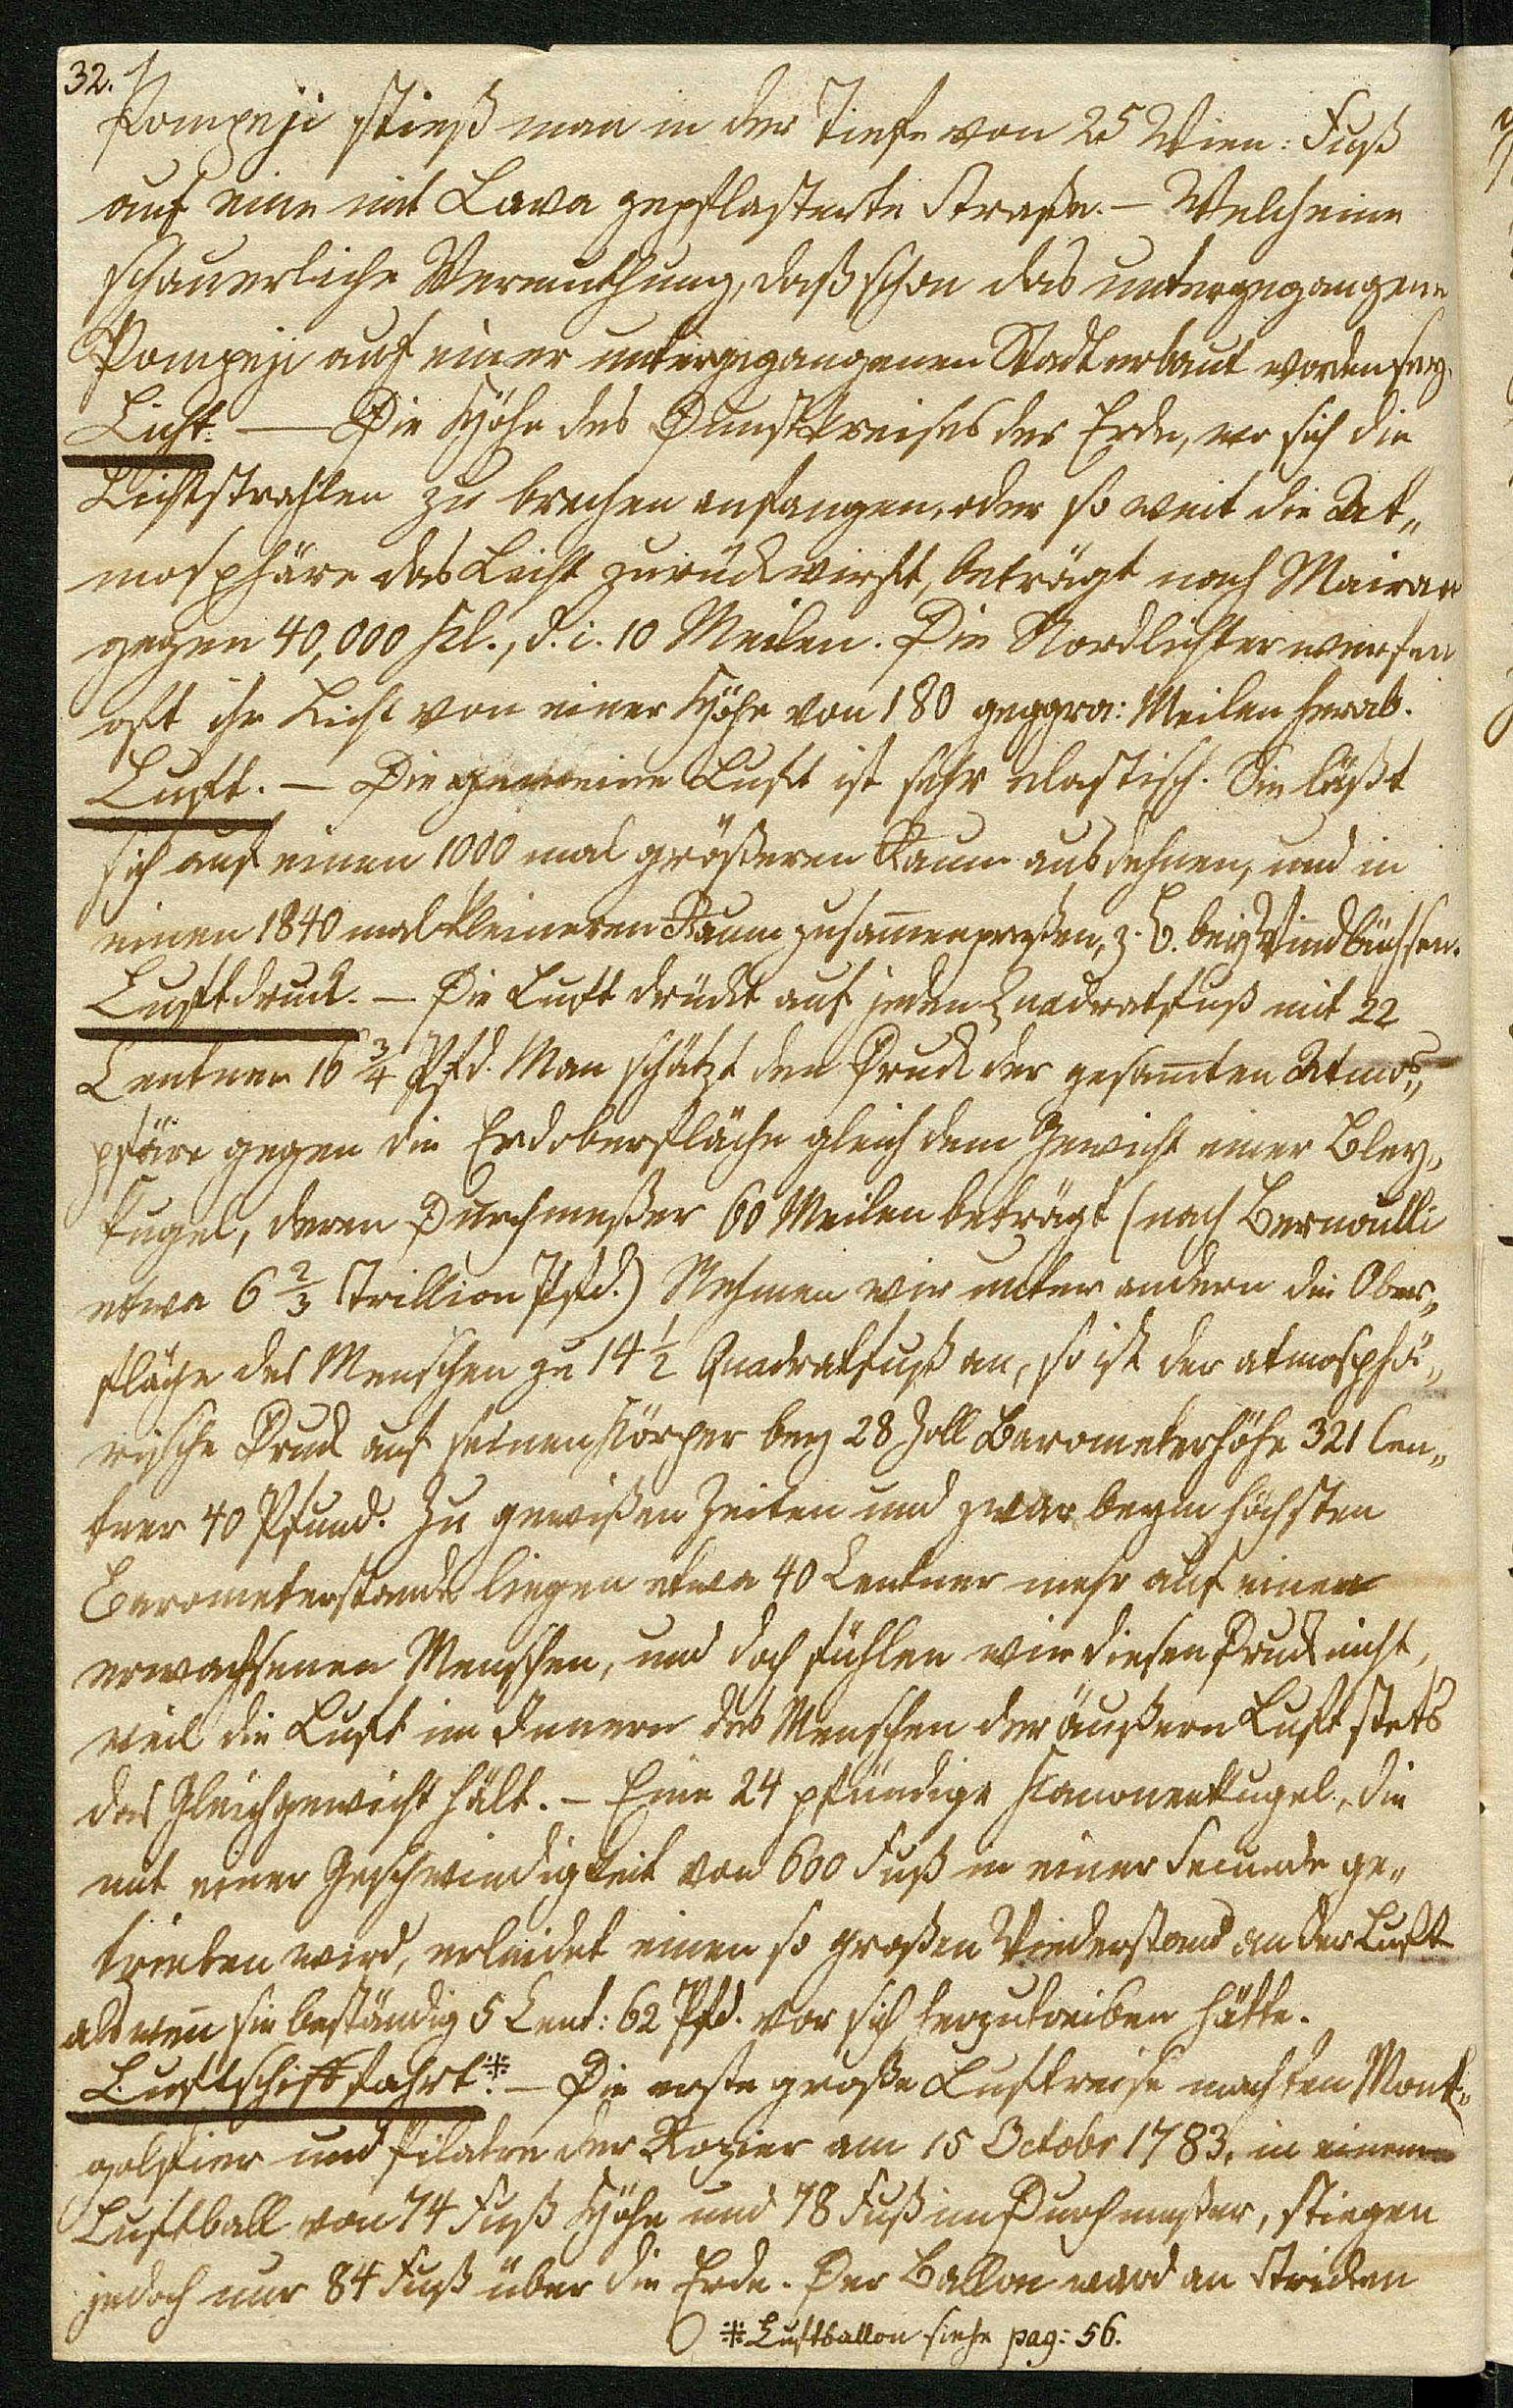 32.
Pompeji stieß man in der Tiefe von 25 Wien: Fuß
auf eine mit Lava gepflasterte Straße. — Welch eine
schauerliche Vermuthung, daß schon das untergegangene
Pompeji auf einer untergegangenen Stadt erbaut worden sey.
Licht. — Die Höhe des Dunstkreises der Erde, wo sich die
Lichtstrahlen zu brechen anfangen, oder so weit die At„
mosphäre das Licht zurückwirft, beträgt nach Mairan
gegen 40,000 Kl., d. i. 10 Meilen. Die Nordlichter werfen
oft ihr Licht von einer Höhe von 180 geogra: Meilen herab.
Luft. — Die gemeine Luft ist sehr elastisch. Sie läßt
sich auf einen 1000 mal größeren Raum ausdehnen, und in
einen 1840 mal kleineren Raum zusam̄enpreßen, z. B. bey Windbüchsen.
Luftdruck. — Die Luft drückt auf jeden Quadratfuß mit 22
Centner 16 3/4 Pfd. Man schätzt den Druck der gesam̄ten Atmos„
phäre gegen die Erdoberfläche gleich dem Gewicht einer Bley„
kugel, deren Durchmeßer 60 Meilen beträgt (nach Bernoulli
etwa 6 2/3 Trillion Pfd.) Nehmen wir unter andern die Ober„
fläche des Menschen zu 14 1/2 Quadratfuß an, so ist der atmosphä„
rische Druck auf seinen Körper bey 28 Zoll Barometerhöhe 321 Cen„
tner 40 Pfund. Zu gewißen Zeiten und zwar beym höchsten
Barometerstande liegen etwa 40 Centner mehr auf einen
erwachsenen Menschen, und doch fühlen wir diesen Druck nicht,
weil die Luft im Innern des Menschen der äußern Luft stets
das Gleichgewicht hält. — Eine 24 pfündige Kanonenkugel, die
mit einer Geschwindigkeit von 600 Fuß in einer Secunde ge„
trieben wird, erleidet einen so großen Wiederstand an der Luft
als wen̄ sie beständig 5 Cent: 62 Pfd. vor sich herzutreiben hätte.
Luftschifffahrt.* — Die erste große Luftreise machten Mont„
golfier und Pilatre der Rozier am 15 Octobr 1783. in einem
Luftball von 74 Fuß Höhe und 78 Fuß im Durchmeßer, stiegen
jedoch nur 84 Fuß über die Erde. Der Ballon ward an Stricken
* Luftballon siehe pag: 56.